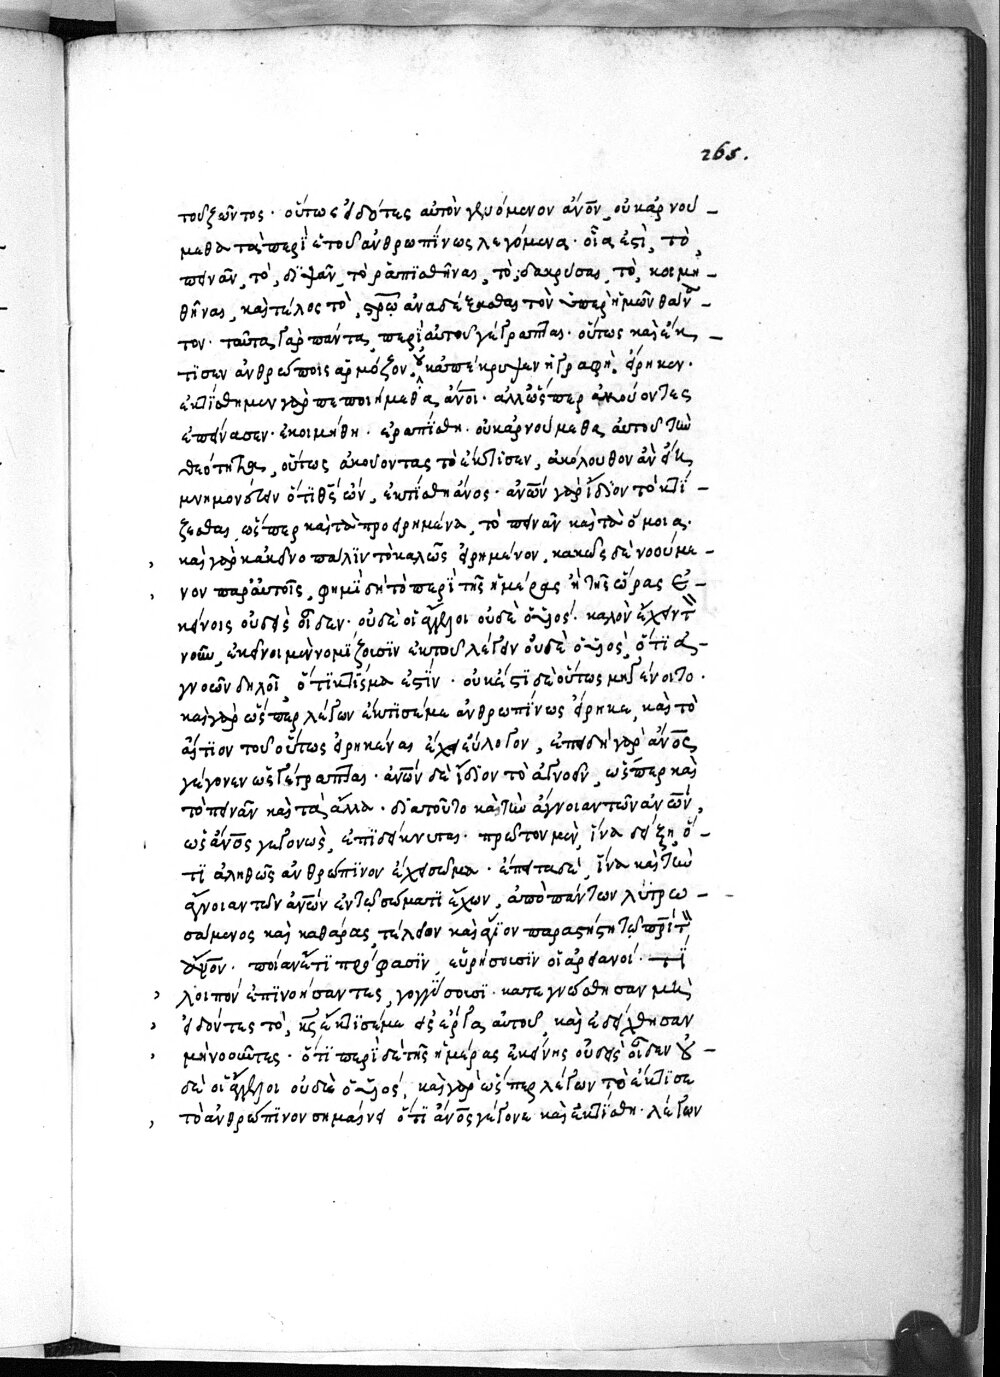 265.
τοῦ ζῶντος· οὕτως εἰδότες αὐτὸν γενόμενον ἄνον, οὐκ ἀρνού–
μεθα τὰ περὶ αὐτοῦ ἀνθρωπίνως λεγόμενα· οἷα ἐστὶ, τὸ,
πεινᾶν, τὸ, διψᾶν, τὸ ῥαπισθῆναι, τὸ, δακρῦσαι, τὸ, κοιμη–
θῆναι, καὶ τέλος τὸ, στρω ἀναδέξασθαι τὸν ὑπὲρ ἡμῶν θάνα–
τον· ταῦτα γὰρ πάντα, περὶ αὐτοῦ γέγραπται· οὕτως καὶ ἔκ–
τισεν ἀνθρώποις ἁρμόζον, οὐκ ἀπέκρυψεν ἡ γραφὴ, εἴρηκεν·
ἐκτίσθημεν γὰρ πεποιήμεθα ἄνοι· ἀλλ' ὥσπερ ἀκούοντες
ἐπείνασεν· ἐκοιμήθη· ἐραπίσθη· οὐκ ἀρνούμεθα αὐτοῦ τὴν
θεότητα, οὕτως ἀκούοντας τὸ ἔκτισεν, ἀκόλουθον ἂν εἴη
μνημονεύειν ὅτι θς ὢν, ἐκτίσθη ἄνος· ἀνων γὰρ ἴδιον τὸ κτί–
ζεσθαι, ὥσπερ καὶ τὰ προειρημένα, τὸ πεινᾶν καὶ τὰ ὅμοια·
καὶ γὰρ κἀκεῖνο πάλιν τὸ καλῶς εἰρημένον, κακῶς δὲ νοούμε–
νον παρ' αὐτοῖς, φημὶ δὴ τὸ περὶ τῆς ἡμέρας ἢ τῆς ὥρας ἐ–
κείνης οὐδεὶς οἶδεν· οὐδὲ οἱ ἄγγελοι οὐδὲ ὁ υἱός· καλὸν ἔχει τὸν
νοῦν, ἐκεῖνοι μὲν νομίζουσιν ἐκ τοῦ λέγειν οὐδὲ ὁ υἱός, ὅτι ἀ–
γνοῶν δηλοῖ ὅτι κτίσμα ἐστίν· οὐκ ἔστι δὲ οὕτως μὴ γένοιτο·
καὶ γὰρ ὥσπερ λέγων ἔκτισέ με ἀνθρωπίνως εἴρηκε, καὶ τὸ
αἴτιον τοῦ οὕτως εἰρηκέναι ἔχει εὔλογον, ἐπειδὴ γὰρ ἄνος
γέγονεν ὡς γέγραπται· ἀνων δὲ ἴδιον τὸ ἀγνοεῖν, ὥσπερ καὶ
τὸ πεινᾶν καὶ τὰ ἄλλα· διὰ τοῦτο καὶ τὴν ἄγνοιαν τῶν ἀνων,
ὡς ἄνος γεγονὼς, ἐπιδείκνυται· πρῶτον μὲν, ἵνα δείξῃ ὅ–
τι ἀληθῶς ἀνθρώπινον ἔχει σῶμα· ἔπειτα δὲ, ἵνα καὶ τὴν
ἄγνοιαν τῶν ἀνων ἐν τῷ σώματι ἔχων, ἀπὸ πάντων λυτρω–
σάμενος καὶ καθάρας, τέλειον καὶ ἅγιον παραστήσῃ τῷ πρὶ τὴν
ποίαν ἔτι πρόφασιν, εὑρήσουσιν οἱ ἀρειανοί· τί
λοιπὸν ἐπινοήσαντες, γογγύσουσι· κατεγνώσθησαν μὴ
εἰδότες τὸ, κς ἔκτισέ με εἰς ἔργα αὐτοῦ, καὶ ἐδείχθησαν
μὴ νοοῦντες· ὅτι περὶ δὲ τῆς ἡμέρας ἐκείνης οὐδεὶς οἶδεν οὐ–
δὲ οἱ ἄγγελοι οὐδὲ ὁ υἱός, καὶ γὰρ ὥσπερ λέγων τὸ ἔκτισε
τὸ ἀνθρώπινον σημαίνει ὅτι ἄνος γέγονε καὶ ἐκτίσθη· λέγων